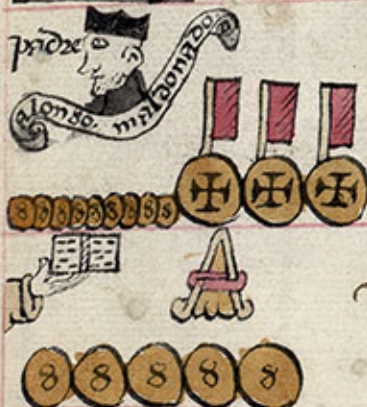 padre
alonso. maldonado
8 8 8 8 8 8 8 8 8
8 8 8 8 8